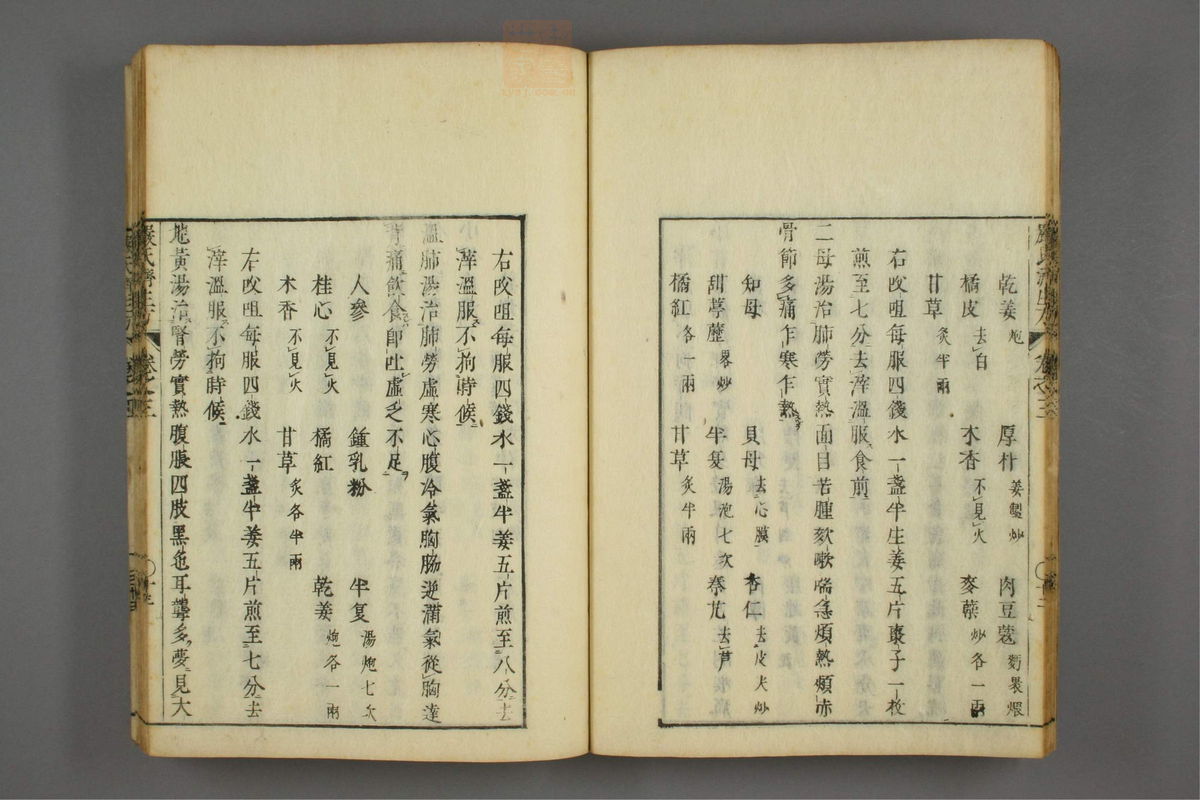 乾姜炮 厚朴姜製炒 肉豆蔻麪裹煨
橘皮去白 木香不見火 麥蘗炒各一兩
甘草炙半兩
右㕮咀每服四錢水一盞半生姜五片棗子一枚
煎至七分去滓溫服食前
二母湯治肺勞實熱面目苦腫欬嗽喘急煩熱頰赤
骨節多痛乍寒乍熱
知母 貝母去心膜 杏仁去皮尖炒
甜葶藶畧炒 半夏湯泡七次 秦艽去芦
橘紅各一兩 甘草炙半兩
右㕮咀每服四錢水一盞半姜五片煎至八分去
滓溫服不拘時候
溫肺湯治肺勞虛寒心腹冷氣胸脇逆滿氣從胸達
背痛飲食卽吐虛乏不足
人參 鍾乳粉 半夏湯炮七次
桂心不見火 橘紅 乾姜炮各一兩
木香不見火 甘草炙各半兩
右㕮咀每服四錢水一盞半姜五片煎至七分去
滓溫服不拘時候
地黃湯治腎勞實熱腹脹四肢黑色耳聾多夢見大
嚴氏濟生方 卷之三